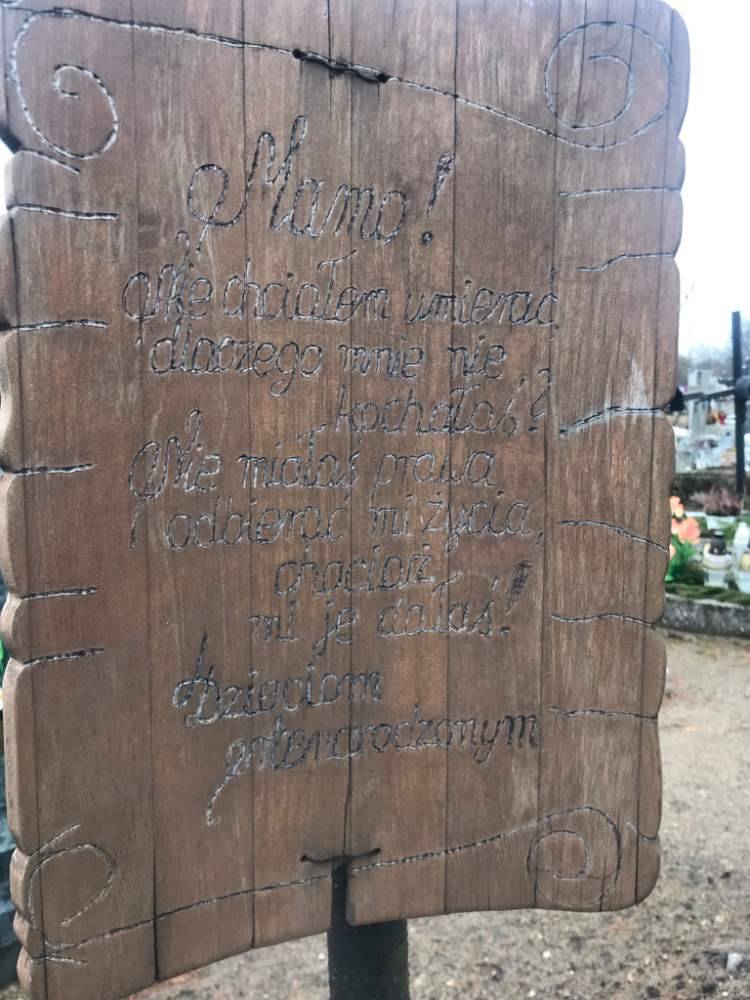 Mamo!
Nie chciałem umierać
dlaczego mnie nie
kochałaś?
Nie miałaś prawa
odbierać mi życia,
chociaż
mi je dałaś!
Dzieciom
nienarodzonym